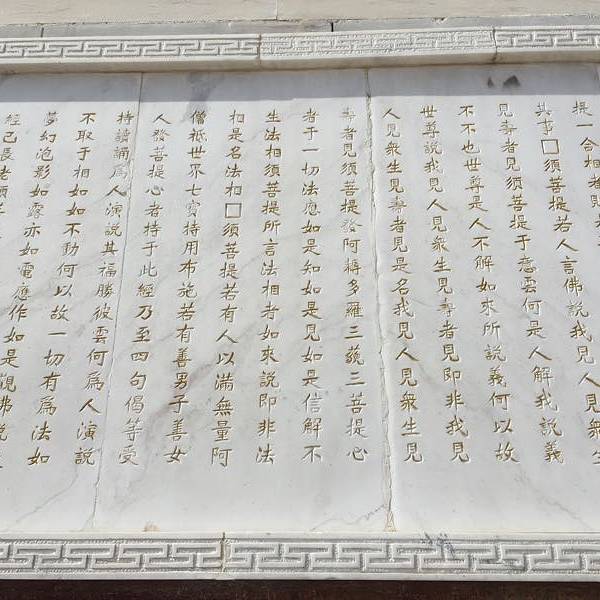 提一合相者則是
其事□須菩提若人言佛說我見人見衆生
見壽者見須菩提于意雲何是人解我說義
不不也世尊是人不解如來所說義何以故
世尊說我見人見衆生見壽者見即非我見
人見衆生見壽者見是名我見人見衆生見
壽者見須菩提發阿耨多羅三藐三菩提心
者于一切法應如是知如是見如是信解不
生法相須菩提所言法相者如來說即非法
相是名法相□須菩提若有人以滿無量阿
僧祇世界七寶持用布施若有善男子善女
人發菩提心者持于此經乃至四句偈等受
持讀誦爲人演說其福勝彼雲何爲人演說
不取于相如如不動何以故一切有爲法如
夢幻泡影如露亦如電應作如是觀佛說是
經已長老須